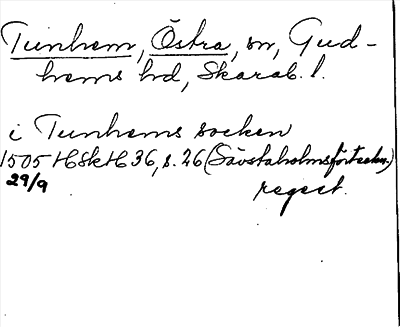 Tunhem, Östra, sn, Gud-
hems hd, Skarab. l.
i Tunhems socken
1505 HSkH 36, s. 26 (Sävstaholmsförteckn.)
29/9 regest.